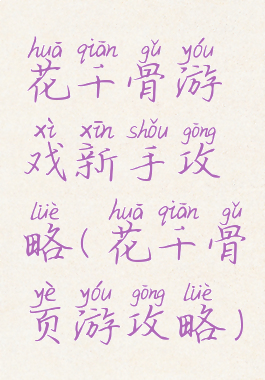 huā qiān gǔ yóu
花千骨游
xì xīn shǒu gōng
戏新手攻
lüè huā qiān gǔ
略(花千骨
yè yóu gōng lüè
页游攻略)